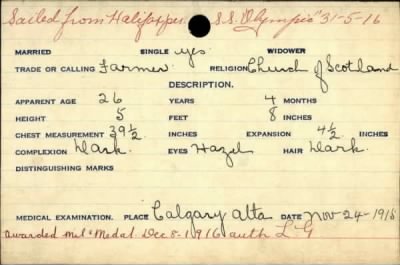 Sailed from Halifax per S.S. "Olympic" 31-5-16
MARRIED SINGLE yes WIDOWER
TRADE OR CALLING Farmer RELIGION Church of Scotland
DESCRIPTION.
APPARENT AGE 26 YEARS 4 MONTHS
HEIGHT 5 FEET 8 INCHES
CHEST MEASUREMENT 39½ INCHES EXPANSION 4½ INCHES
COMPLEXION Dark. EYES Hazel HAIR Dark.
DISTINGUISHING MARKS
MEDICAL EXAMINATION. PLACE Calgary Alta DATE Nov-24-1915
awarded Mil. Medal. Dec 8-1916 auth L.G